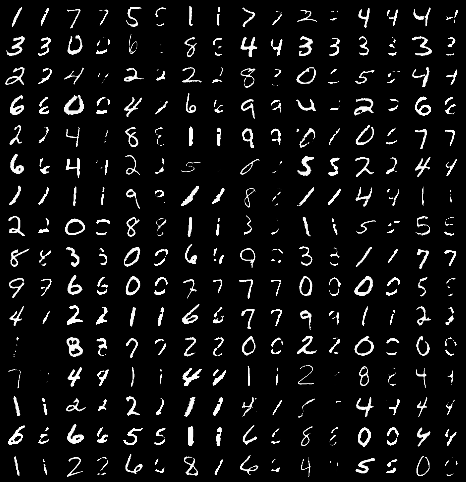 1 1 7 7 5 5 1 1 7 7 2 4 4 4 4
3 3 0 0 6 8 8 4 4 3 3 3 3 3 3
2 2 4 2 2 2 2 8 0 5 5 4 4
6 6 0 0 4 6 6 9 9 4 2 6 6
2 2 4 8 8 1 1 9 9 0 0 7 7
6 6 4 4 2 2 5 6 5 5 2 2 4 4
1 1 1 1 9 1 1 8 1 1 4 4 1 1
2 2 0 0 8 8 1 1 3 1 1 5 5 5 5
8 8 3 3 0 0 6 6 9 3 3 1 1 7 7
9 7 6 6 0 0 7 7 7 7 0 0 0 0 5 5
4 2 2 1 1 6 6 7 7 9 9 1 1 2 2
8 8 7 7 2 2 0 0 2 2 0 0 0 0
7 4 4 1 1 4 4 1 1 2 8 4 4
1 1 2 2 2 2 1 1 4 5 4 4 4 4
6 6 6 6 5 5 1 1 6 6 8 8 0 0 4 4
1 1 2 2 6 6 8 6 6 4 5 5 0 0